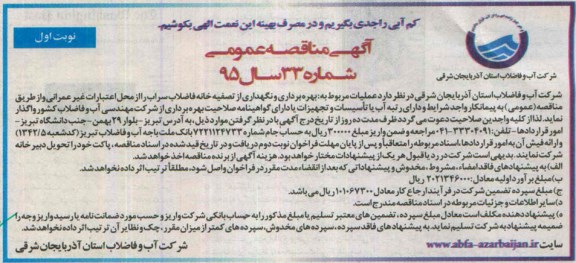 کم آبی را جدی بگیریم و در مصرف بهینه این نعمت الهی بکوشیم.
نوبت اول
آگهی مناقصه عمومی
شماره ۳۳ سال ۹۵
شرکت آب و فاضلاب استان آذربایجان شرقی
شرکت آب و فاضلاب استان آذربایجان شرقی در نظر دارد عملیات مربوط به: بهره برداری و نگهداری از تصفیه خانه فاضلاب سراب را از محل اعتبارات غیر عمرانی و از طریق
مناقصه (عمومی) به پیمانکار واجد شرایط و دارای رتبه آب یا تأسیسات و تجهیزات یا دارای گواهینامه صلاحیت بهره برداری از شرکت مهندسی آب و فاضلاب کشور واگذار
نماید. لذا از کلیه واجدین صلاحیت دعوت می گردد ظرف مدت ده روز از تاریخ درج آگهی با در نظر گرفتن موارد ذیل، به آدرس تبریز- بلوار ۲۹ بهمن - جنب دانشگاه تبریز -
امور قراردادها - تلفن: ۳۳۳۰۴۰۹۱-۰۴۱ مراجعه و ضمن واریز مبلغ ۳۰۰۰۰۰ ریال به حساب جام شماره ۷۲۲۱۱۲۴۷۳۳ بانک ملت باجه آب و فاضلاب تبریز (کد شعبه ۱۳۴۲/۵)
و ارائه فیش آن به امور قراردادها، اسناد مربوطه را متعاقباً و پس از پایان مهلت فراخوان نوبت دوم دریافت و در تاریخ قید شده در اسناد مناقصه، پاکت خود را تحویل دبیر خانه
شرکت نمایند. بدیهی است شرکت در رد یا قبول هر یک از پیشنهادات مختار خواهد بود. هزینه آگهی از برنده مناقصه اخذ خواهد شد.
الف) به پیشنهادهای فاقد امضاء، مشروط، مخدوش و پیشنهاداتی که بعد از انقضاء مدت مقرر در فراخوان واصل شود، مطلقاً ترتیب اثر داده نخواهد شد.
ب) مبلغ برآورد اولیه معادل: ۲۰۲۱۳۴۶۰۰۰ ریال است.
ج) مبلغ سپرده تضمین شرکت در فرآیند ارجاع کار معادل ۱۰۱۰۶۷۳۰۰ ریال می باشد.
د) سایر اطلاعات و جزئیات مربوطه در اسناد مناقصه مندرج است.
ه) پیشنهاد دهنده مکلف است معادل مبلغ سپرده، تضمین های معتبر تسلیم یا مبلغ مذکور را به حساب بانکی شرکت واریز و حسب مورد ضمانت نامه یا رسید واریز وجه را
ضمیمه پیشنهاد به شرکت تسلیم نماید. به پیشنهادهای فاقد سپرده، سپرده های مخدوش، سپرده های کمتر از میزان مقرر، چک و نظایر آن ترتیب اثر داده نخواهد شد.
سایت www.abfa-azarbaijan.ir
شرکت آب و فاضلاب استان آذربایجان شرقی